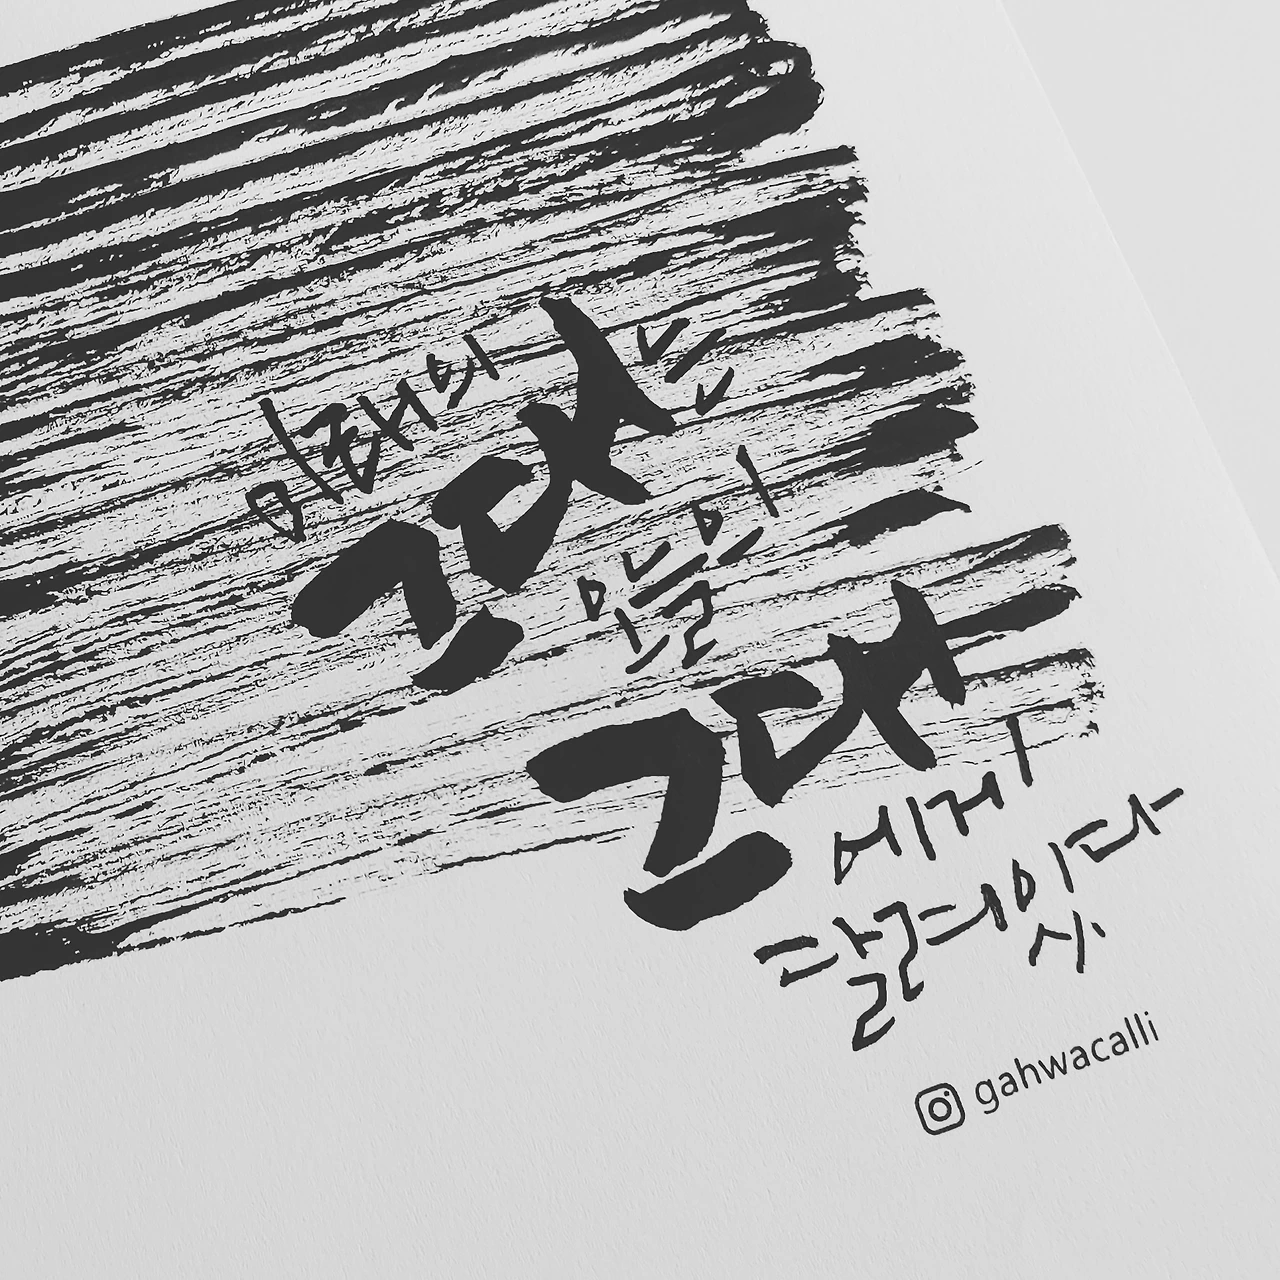 미래의
그대는
오늘의
그대
에게
달려있다
gahwacalli